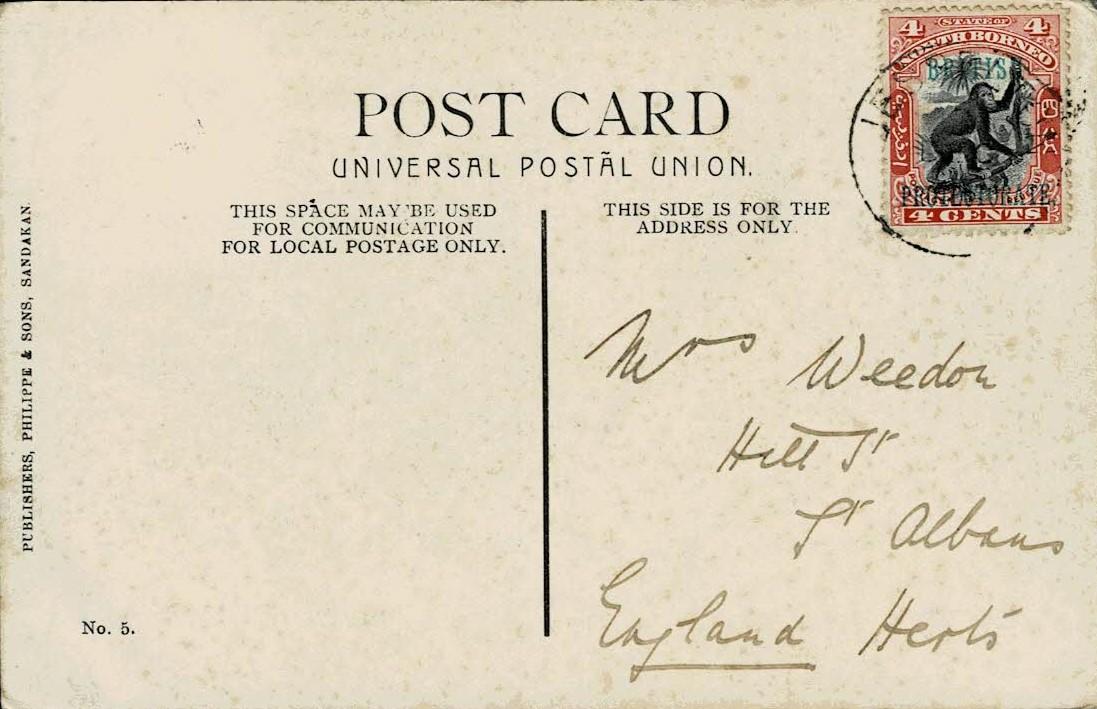 POST CARD
UNIVERSAL POSTÃL UNION.
THIS SPACE MAY BE USED
FOR COMMUNICATION
FOR LOCAL POSTAGE ONLY.
THIS SIDE IS FOR THE
ADDRESS ONLY.
4 STATE OF 4
NORTH BORNEO
BRITISH
PROTECTORATE.
4 CENTS
Mrs Weedon
Hill St
St Albans
England Herts
PUBLISHERS, PHILIPPE & SONS, SANDAKAN.
No. 5.